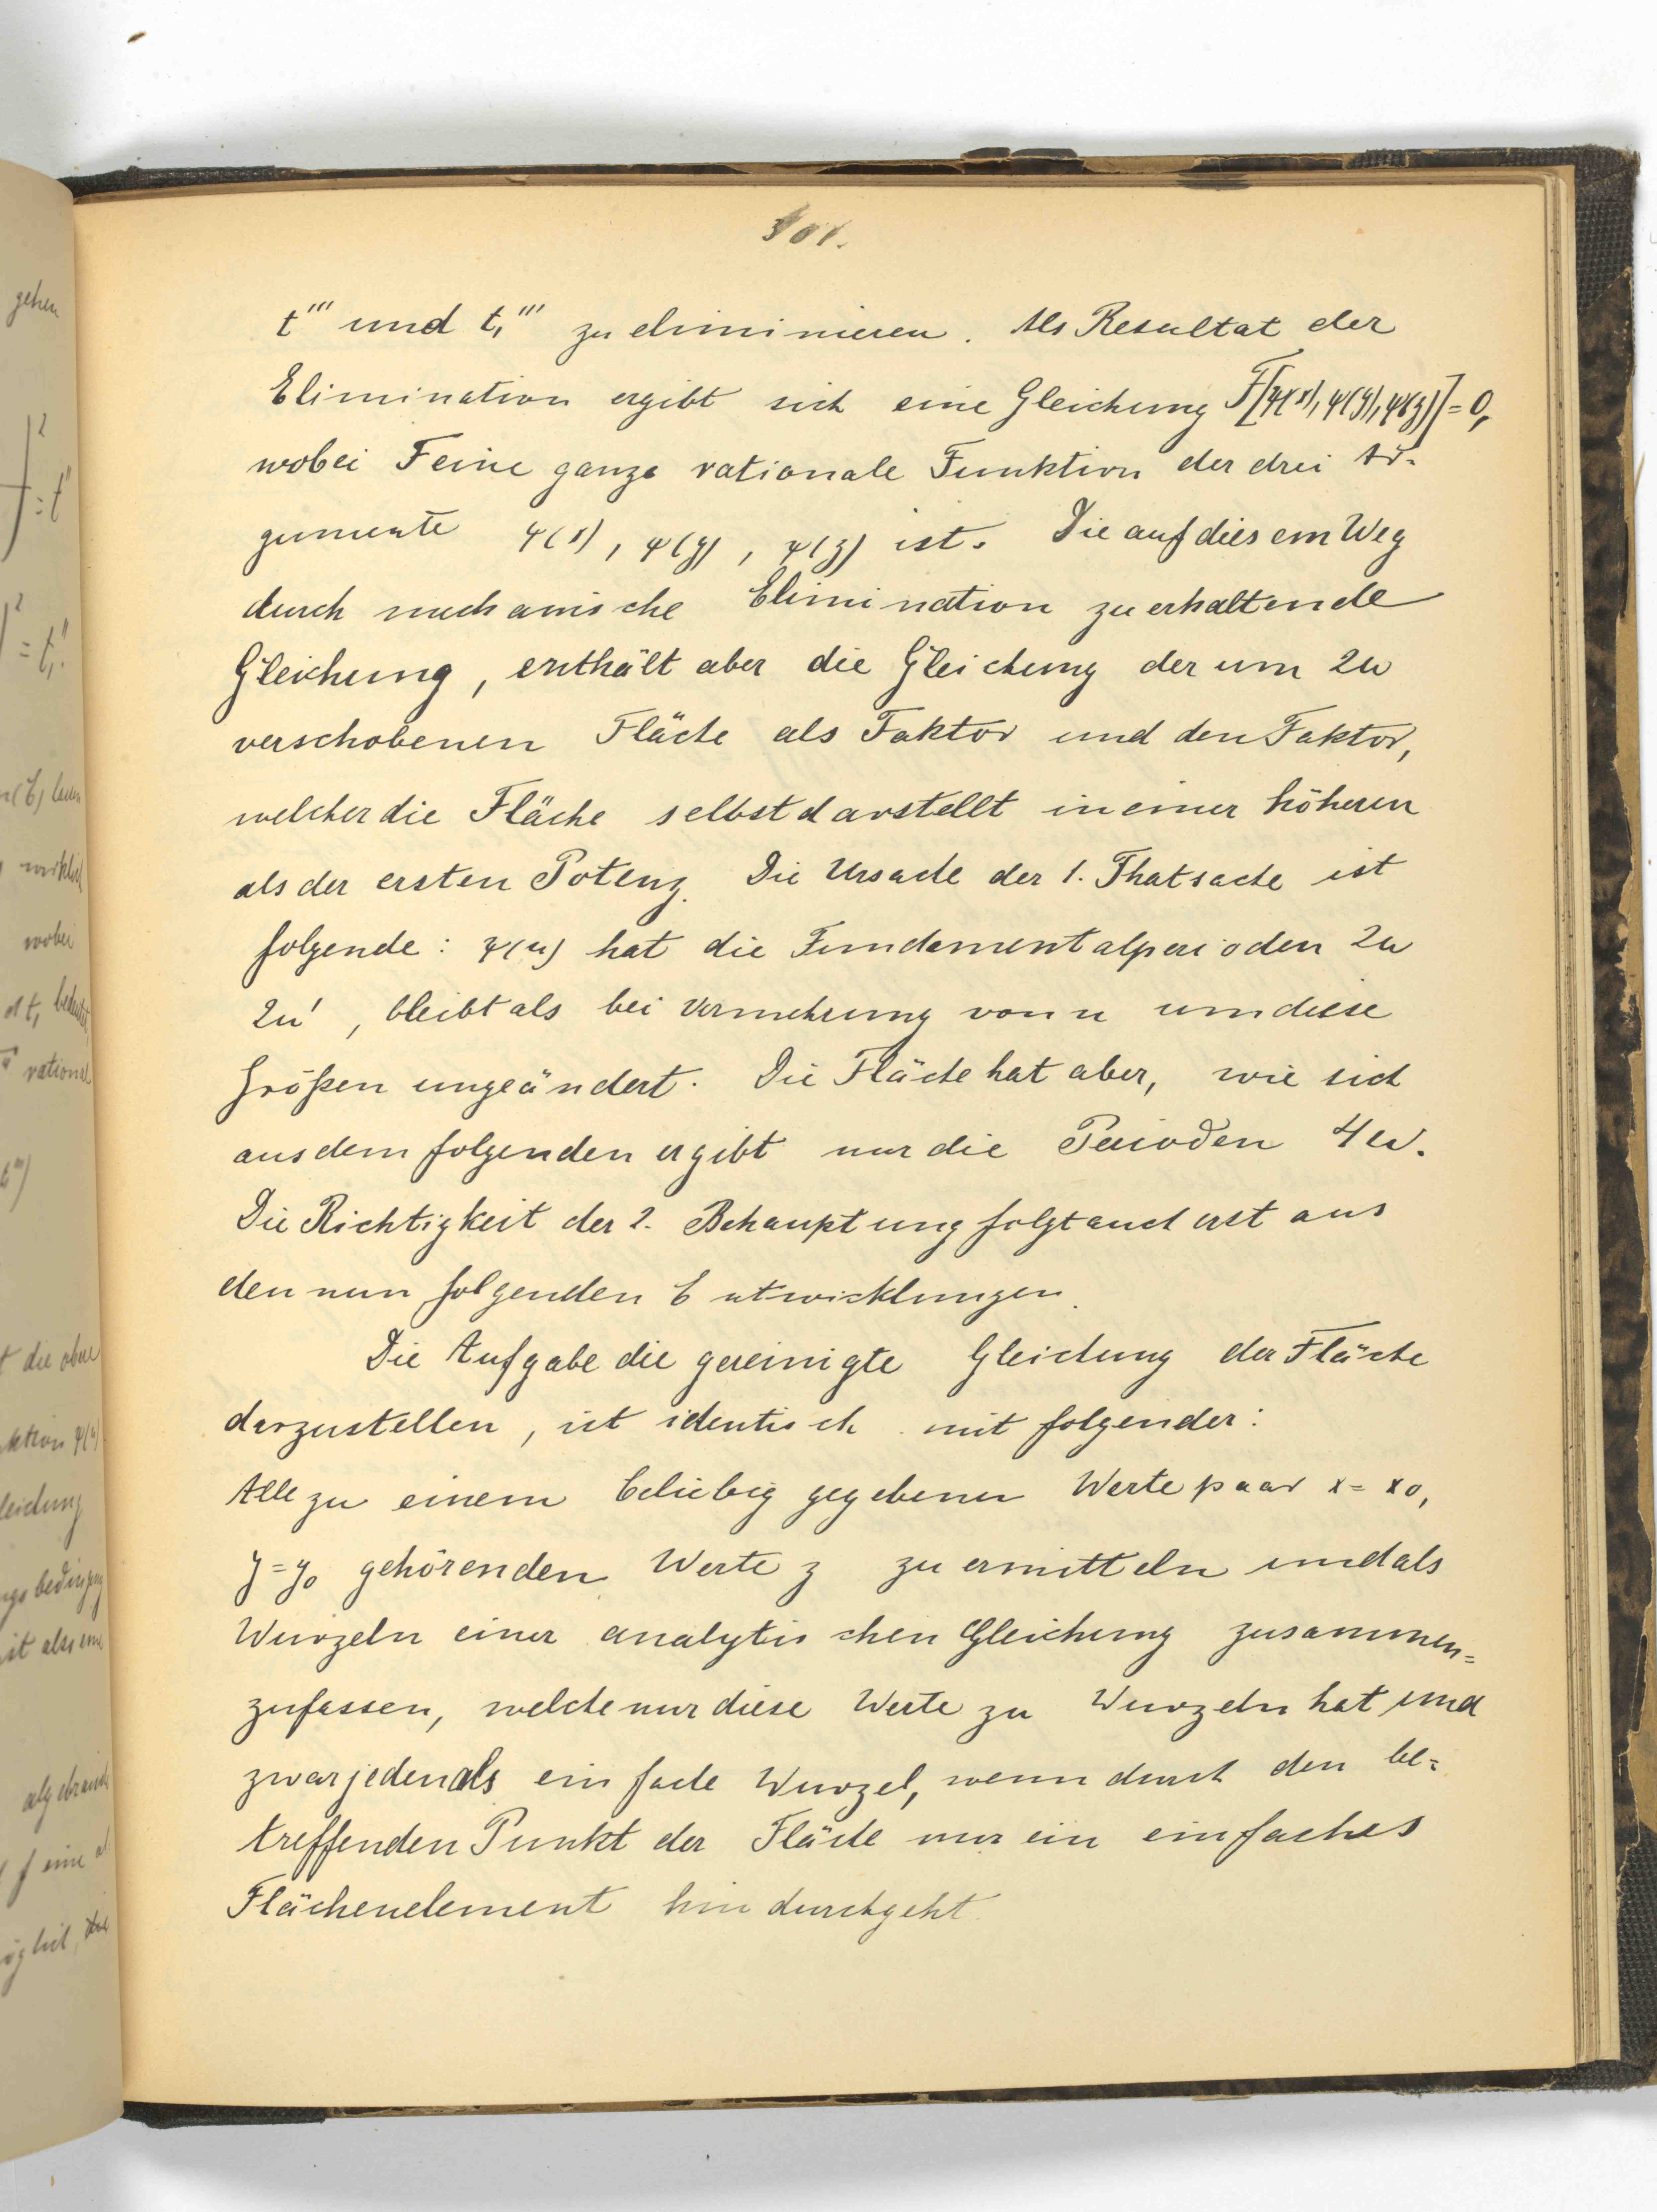 301.
t''' und t,''' zu eliminieren. Als Resultat der
Elimination ergibt sich eine Gleichung F[ψ(x), ψ(y), ψ(z)] = 0,
wobei F eine ganze rationale Funktion der drei Ar-
gumente ψ(x), ψ(y), ψ(z) ist. Die auf diesem Weg
durch mechanische Elimination zu erhaltende
Gleichung, enthält aber die Gleichung der um 2ω
verschobenen Fläche als Faktor und den Faktor,
welcher die Fläche selbst darstellt in einer höheren
als der ersten Potenz. Die Ursache der 1. Thatsache ist
folgende: ψ(u) hat die Fundamentalperioden 2ω
2ω', bleibt als bei Vermehrung von u um diese
Größen ungeändert. Die Fläche hat aber, wie sich
aus dem folgenden ergibt nur die Perioden 4ω.
Die Richtigkeit der 2. Behauptung folgt auch erst aus
den nun folgenden Entwicklungen.
Die Aufgabe die gereinigte Gleichung der Fläche
darzustellen, ist identisch mit folgender:
Alle zu einem beliebig gegebenen Wertepaar x = x0,
y = y0 gehörenden Werte z zu ermitteln und als
Wurzeln einer analytischen Gleichung zusammen=
zufassen, welche nur diese Werte zu Wurzeln hat und
zwar jeden als einfache Wurzel, wenn durch den be=
treffenden Punkt der Fläche nur ein einfaches
Flächenelement hindurchgeht.
gehen
wirklich
wobei
rational
t die obere
algebraische
f eine